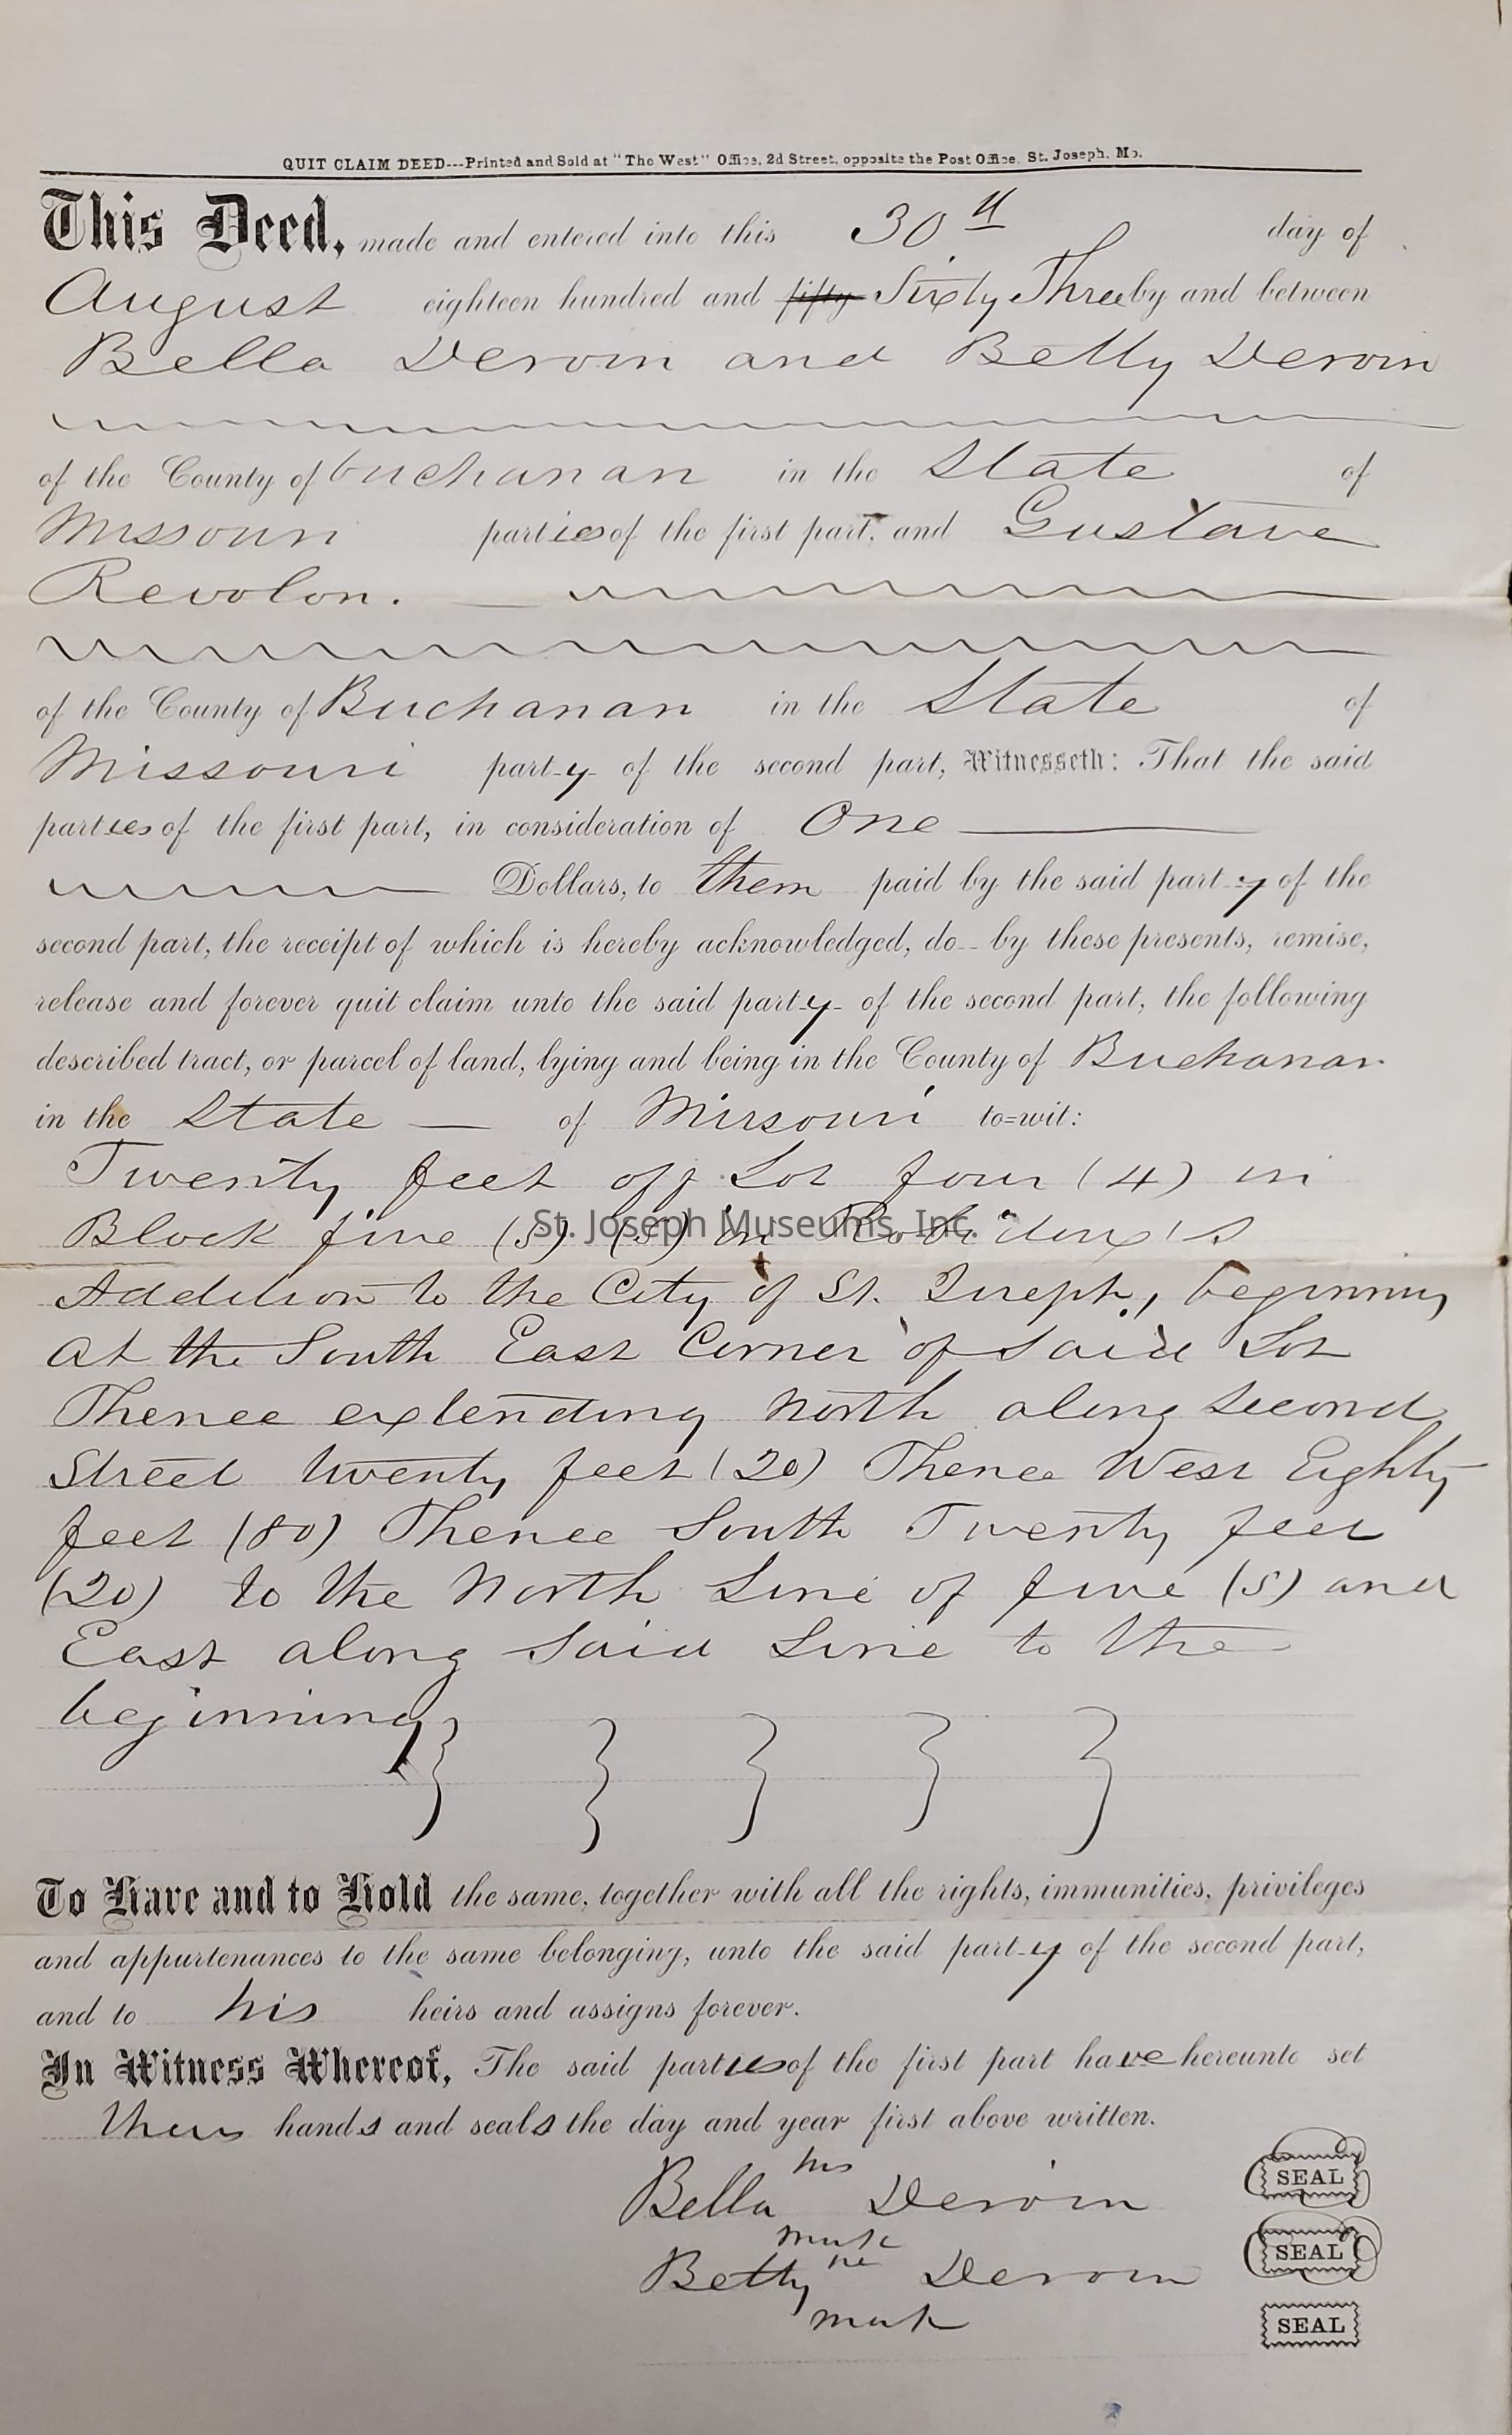 QUIT CLAIM DEED---Printed and Sold at "The West" Office, 2d Street, opposite the Post Office, St. Joseph, Mo.
This Deed, made and entered into this 30th day of
August eighteen hundred and fifty Sixty Three by and between
Bella Deroin and Betty Deroin
of the County of buchanan in the State of
Missouri parties of the first part, and Gustave
Revolon.
of the County of Buchanan in the State of
Missouri party of the second part, Witnesseth: That the said
parties of the first part, in consideration of One
Dollars, to them paid by the said party of the
second part, the receipt of which is hereby acknowledged, do by these presents, remise,
release and forever quit claim unto the said party of the second part, the following
described tract, or parcel of land, lying and being in the County of Buchanan
in the State of Missouri to=wit:
Twenty feet off Lot four (4) in
Block five (5) (5) in Robidoux's
St. Joseph Museums, Inc.
Addition to the City of St. Joseph, beginning
at the South East Corner of Said Lot
Thence extending North along Second
Street twenty feet (20) Thence West Eighty
feet (80) Thence South Twenty feet
(20) to the North Line of five (5) and
East along Said Line to the
beginning
To Have and to Hold the same, together with all the rights, immunities, privileges
and appurtenances to the same belonging, unto the said party of the second part,
and to his heirs and assigns forever.
In Witness Whereof, The said parties of the first part have hereunto set
their hands and seals the day and year first above written.
his
Bella Deroin SEAL
mark
Betty Deroin SEAL
mark
SEAL